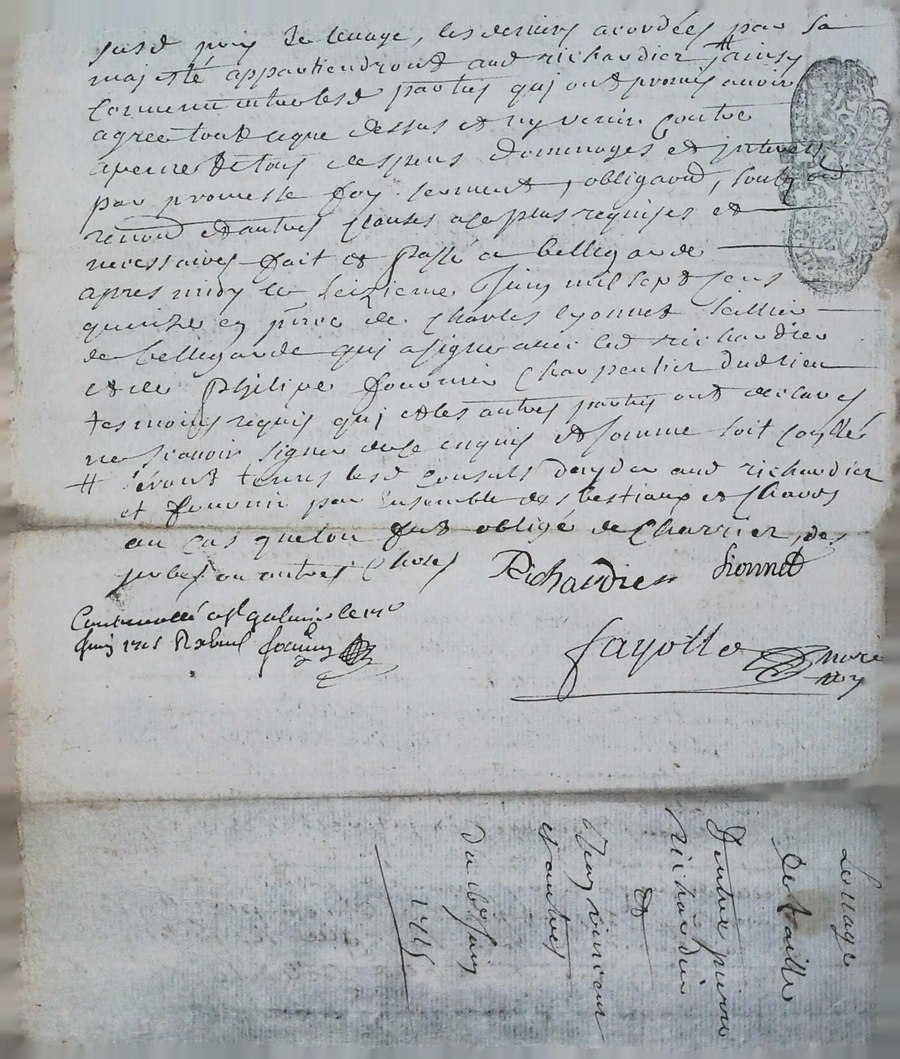 susd prix de leuage, les deniers acordées par sa
majesté appartiendront aud richardier # ainsy
convenu entre lesd parties quj ont promis avoir
agree tout ce que dessus et ny venir contre
a peine de tous despens dommages et jnterets
par promesse foy serment, obligaond,
renond et autres clauses a ce plus requises et
necessaires fait et passé a bellegarde
apres midy le seizieme Juin mil sept cens
quinze en pnce de Charles Lyonnet sellier
de bellegarde quj a signe avec led richardier
et de philipe fournier Charpentier dud lieu
tesmoins requis quj et les autres parties ont declares
ne scavoir signer de ce enquis et somme soit conllé
# seront tenus lesd consuls dayder aud richardier
et fournir par ensemble des bestiaux et Chards
au cas quelon fut obligé de Charrier, des
gerbes ou autres Choses
Richardier Lionnet
Contrerollé a St galmier le 17e
Juin 1715 Reçu
fayolle nore
roy
Leuage
de taille
Dentre pierre
richardier
et
Jean vincent
et autres
du 16e Juin
1715